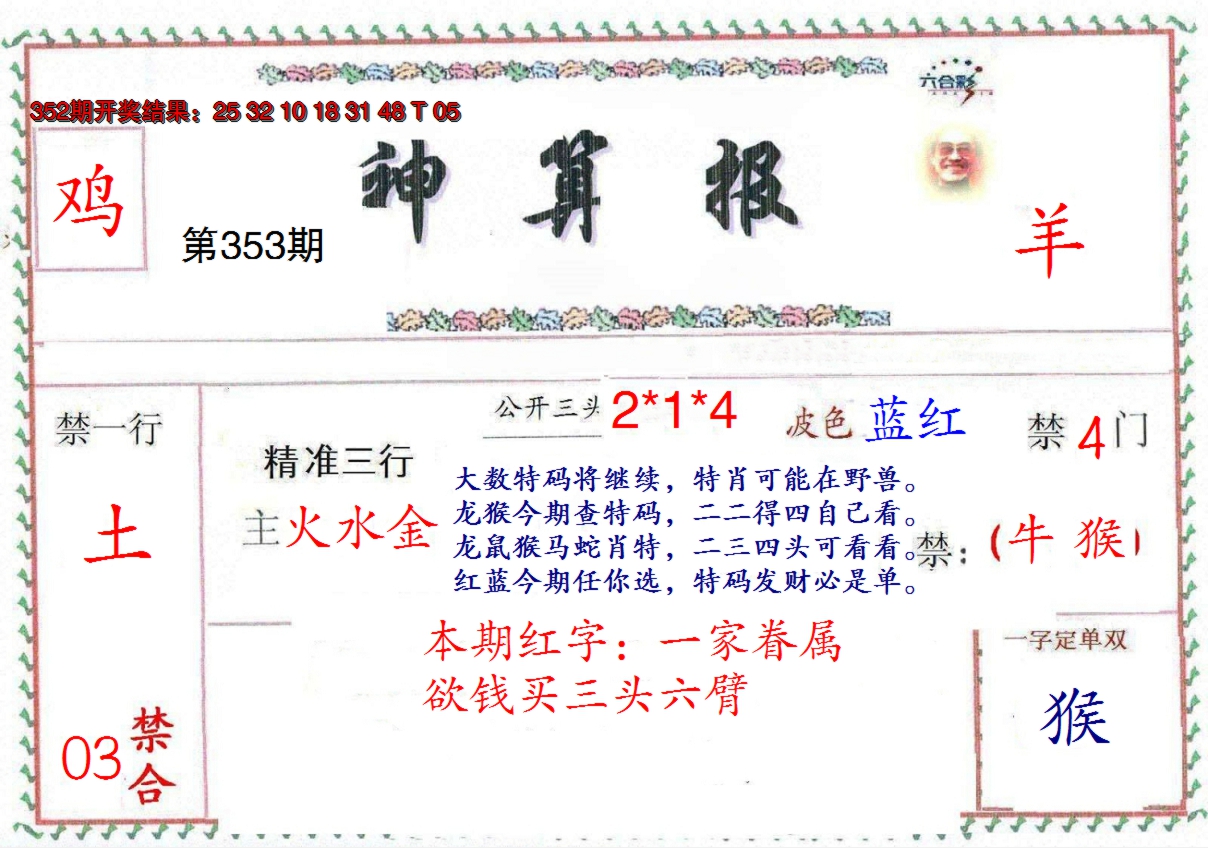 六合彩
352期开奖结果：25 32 10 18 31 48 T 05
鸡
神算报
第353期
羊
公开三头 2*1*4
波色 蓝红
禁一行
禁 4 门
精准三行
大数特码将继续，特肖可能在野兽。
土
主火水金
龙猴今期查特码，二二得四自己看。
龙鼠猴马蛇肖特，二三四头可看看。
禁：（牛 猴）
红蓝今期任你选，特码发财必是单。
本期红字：一家眷属
欲钱买三头六臂
一字定单双
猴
03 禁合